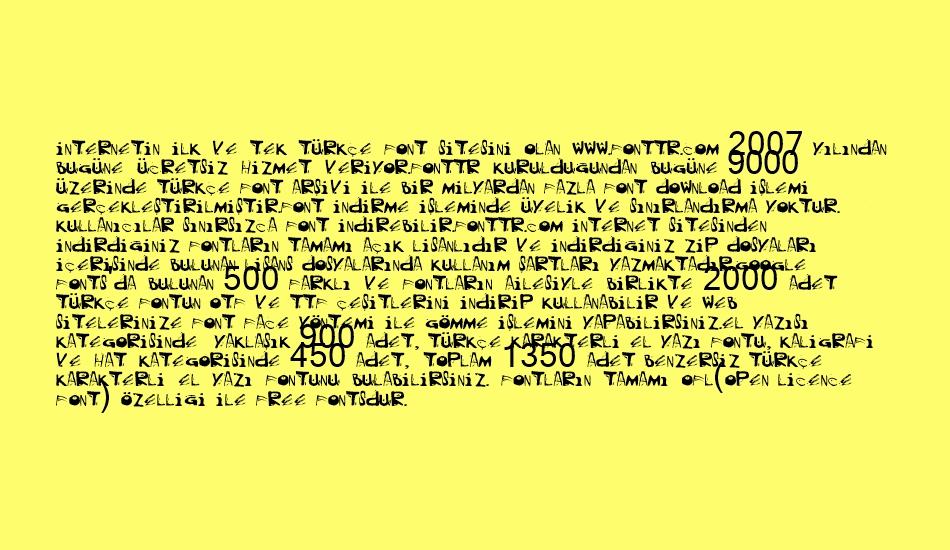 İNTERNETİN İLK VE TEK TÜRKÇE FONT SİTESİNİ OLAN WWW.FONTTR.COM 2007 YILINDAN
BUGÜNE ÜCRETSİZ HİZMET VERİYOR.FONTTR KURULDUĞUNDAN BUGÜNE 9000
ÜZERİNDE TÜRKÇE FONT ARŞİVİ İLE BİR MİLYARDAN FAZLA FONT DOWNLOAD İŞLEMİ
GERÇEKLEŞTİRİLMİŞTİR.FONT İNDİRME İŞLEMİNDE ÜYELİK VE SINIRLANDIRMA YOKTUR.
KULLANICILAR SINIRSIZCA FONT İNDİREBİLİR.FONTTR.COM İNTERNET SİTESİNDEN
İNDİRDİĞİNİZ FONTLARIN TAMAMI AÇIK LİSANLIDIR VE İNDİRDİĞİNİZ ZİP DOSYALARI
İÇERİSİNDE BULUNAN LİSANS DOSYALARINDA KULLANIM ŞARTLARI YAZMAKTADIR.GOOGLE
FONTS DA BULUNAN 500 FARKLI VE FONTLARIN AİLESİYLE BİRLİKTE 2000 ADET
TÜRKÇE FONTUN OTF VE TTF ÇEŞİTLERİNİ İNDİRİP KULLANABİLİR VE WEB
SİTELERİNİZE FONT FACE YÖNTEMİ İLE GÖMME İŞLEMİNİ YAPABİLİRSİNİZ.EL YAZISI
KATEGORİSİNDE YAKLAŞIK 900 ADET, TÜRKÇE KARAKTERLİ EL YAZI FONTU, KALİGRAFİ
VE HAT KATEGORİSİNDE 450 ADET, TOPLAM 1350 ADET BENZERSİZ TÜRKÇE
KARAKTERLİ EL YAZI FONTUNU BULABİLİRSİNİZ. FONTLARIN TAMAMI OFL(OPEN LİCENCE
FONT) ÖZELLİĞİ İLE FREE FONTSDUR.